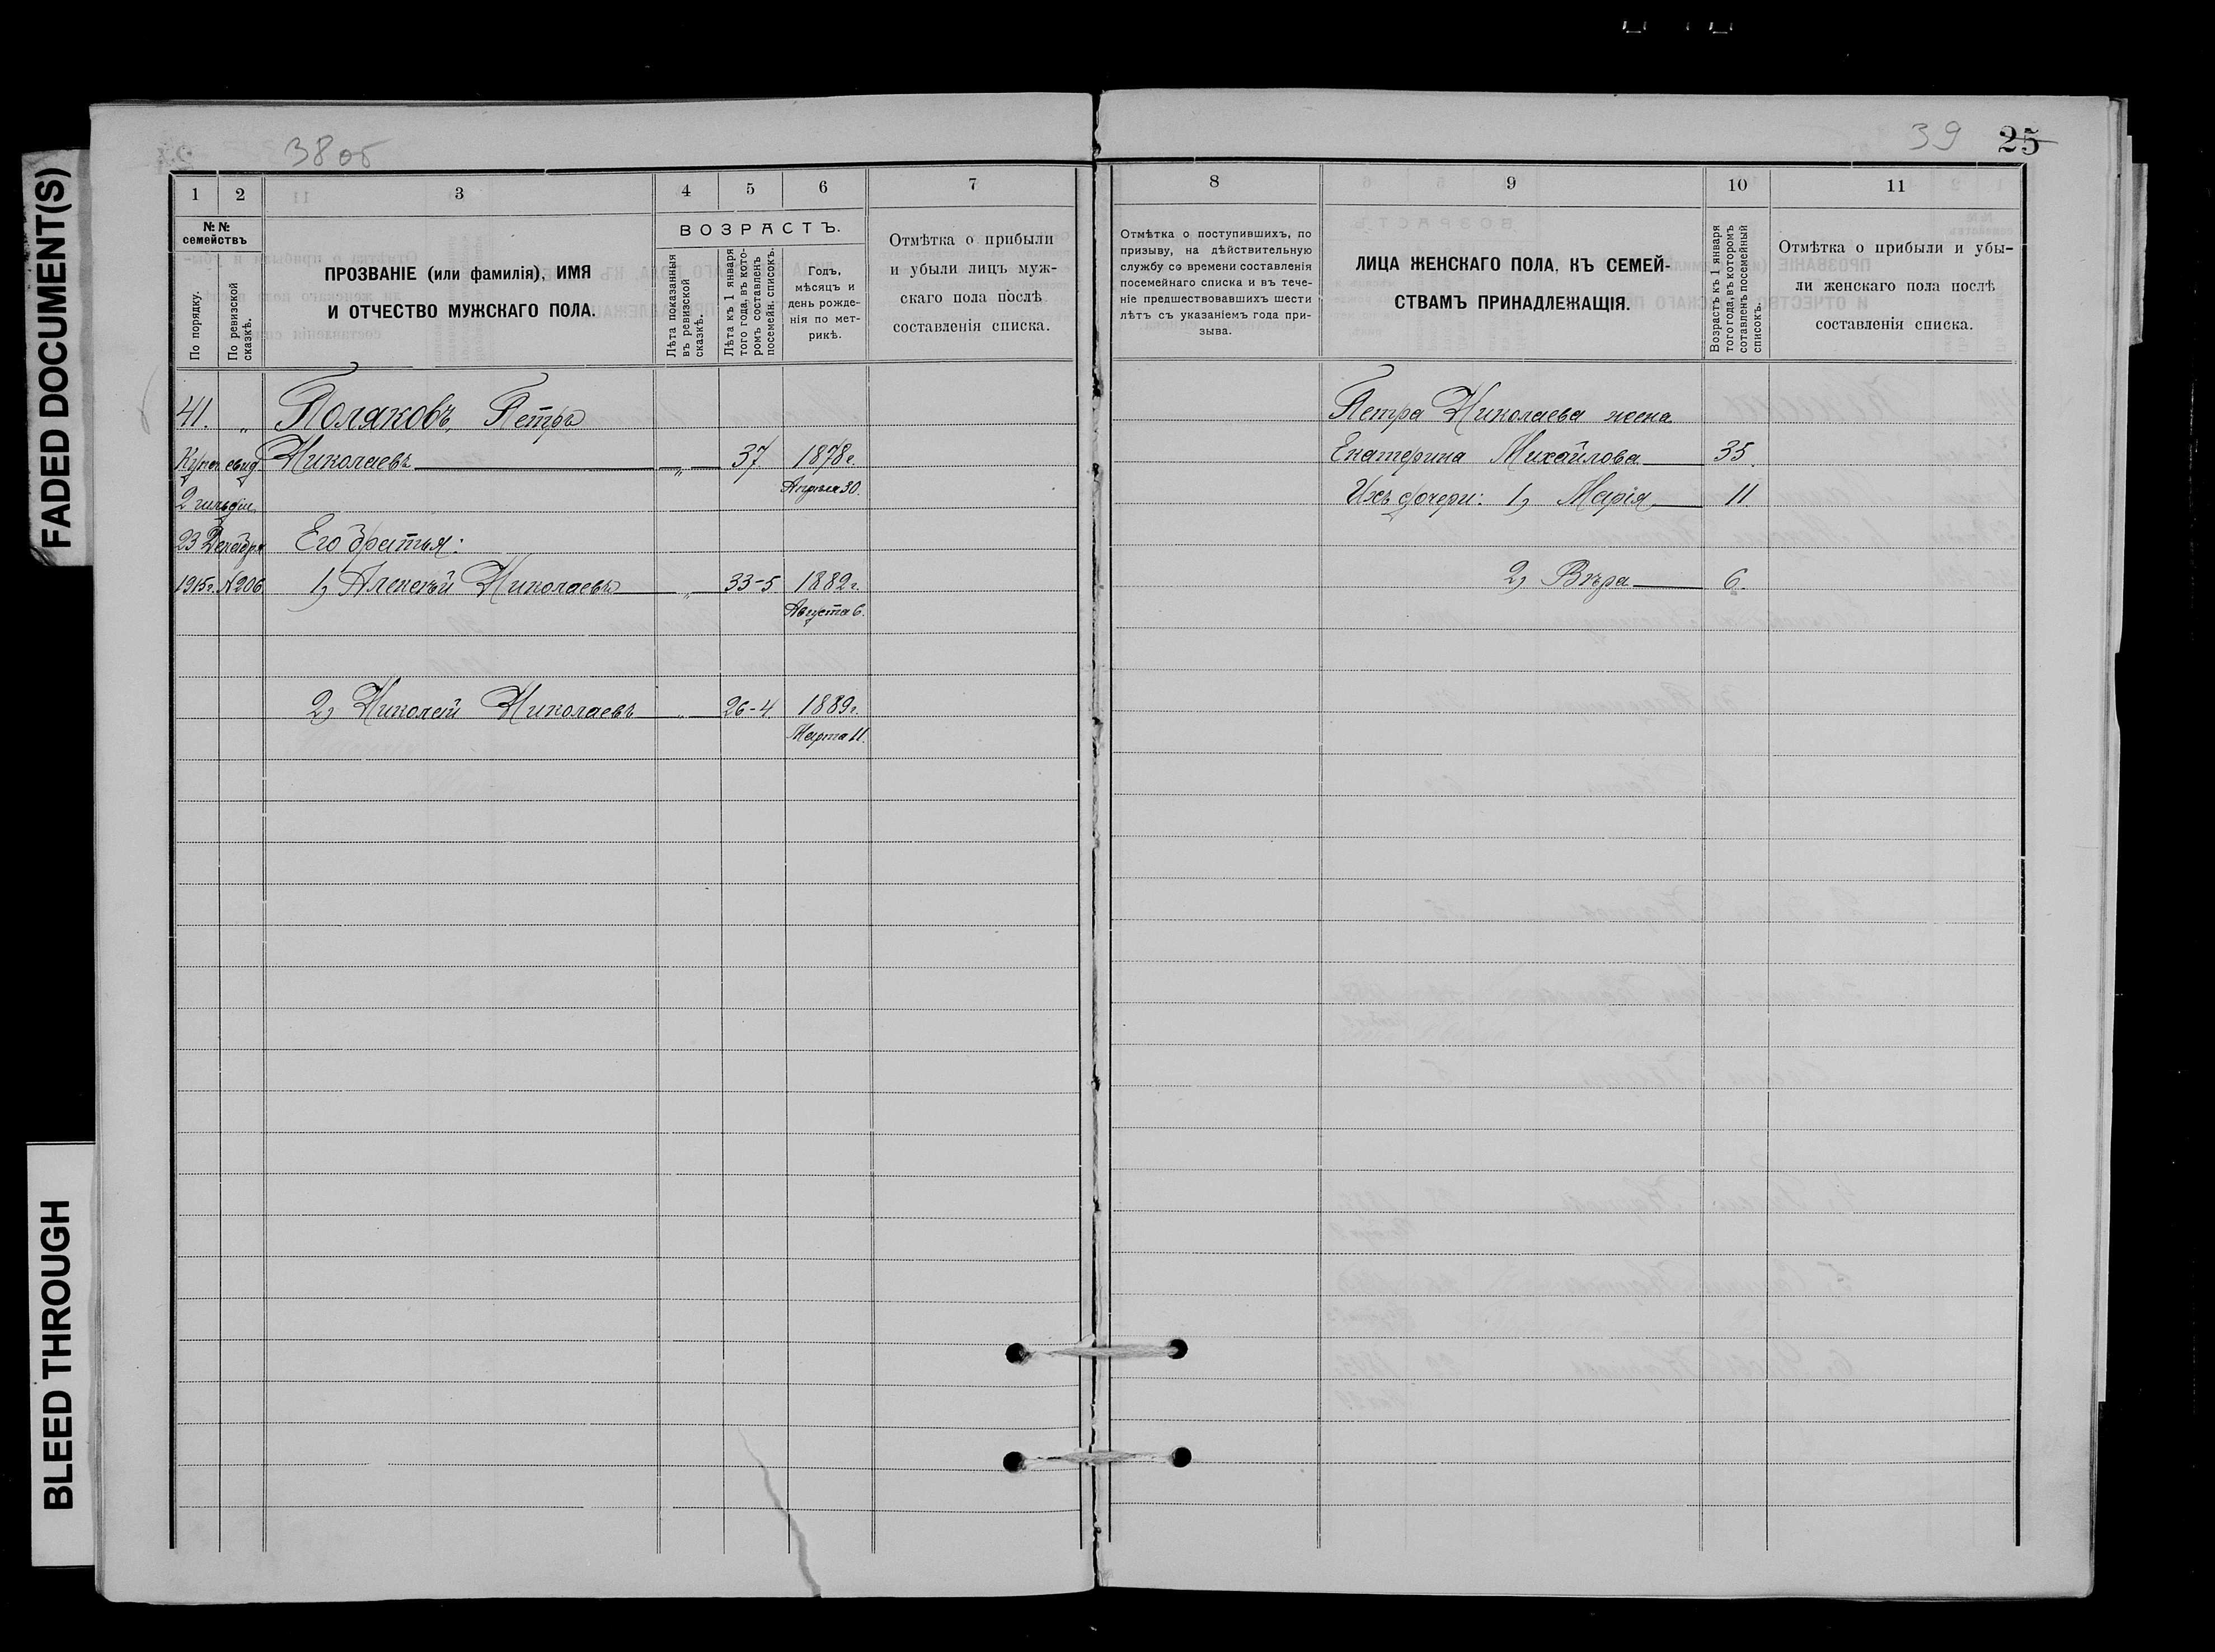 FADED DOCUMENT(S)
BLEED THROUGH
38об
39 25
1 2 3 4 5 6 7
№ № семействъ
По порядку.
По ревизской сказкѣ.
ПРОЗВАНІЕ (или фамилія), ИМЯ
И ОТЧЕСТВО МУЖСКАГО ПОЛА.
ВОЗРАСТЪ.
Лѣта показанныя
въ ревизской
сказкѣ.
Лѣта къ 1 января
того года, въ кото-
ромъ составленъ
посемейн. списокъ.
Годъ,
мѣсяцъ и
день рожде-
нія по мет-
рикѣ.
Отмѣтка о прибыли
и убыли лицъ муж-
скаго пола послѣ
составленія списка.
41. „ Поляковъ, Петръ
Купеч. свид. Николаевъ „ 37 1878г.
Апрѣля 30.
2 гильдіи
23 Декабря Его братья:
1915г. № 206 1, Алексѣй Николаевъ „ 33-5 1882г.
Августа 6.
2, Николай Николаевъ „ 26-4 1889г.
Марта 11.
8 9 10 11
Отмѣтка о поступившихъ, по
призыву, на дѣйствительную
службу со времени составленія
посемейнаго списка и въ тече-
ніе предшествовавшихъ шести
лѣтъ съ указаніемъ года при-
зыва.
ЛИЦА ЖЕНСКАГО ПОЛА, КЪ СЕМЕЙ-
СТВАМЪ ПРИНАДЛЕЖАЩІЯ.
Возрастъ къ 1 января
того года, въ которомъ
сотавленъ посемейный
списокъ.
Отмѣтка о прибыли и убы-
ли женскаго пола послѣ
составленія списка.
Петра Николаева жена
Екатерина Михайлова 35.
Ихъ дочери: 1, Марія 11.
2, Вѣра 6.